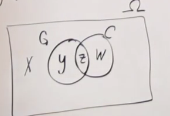 Ω
G C
X y z W